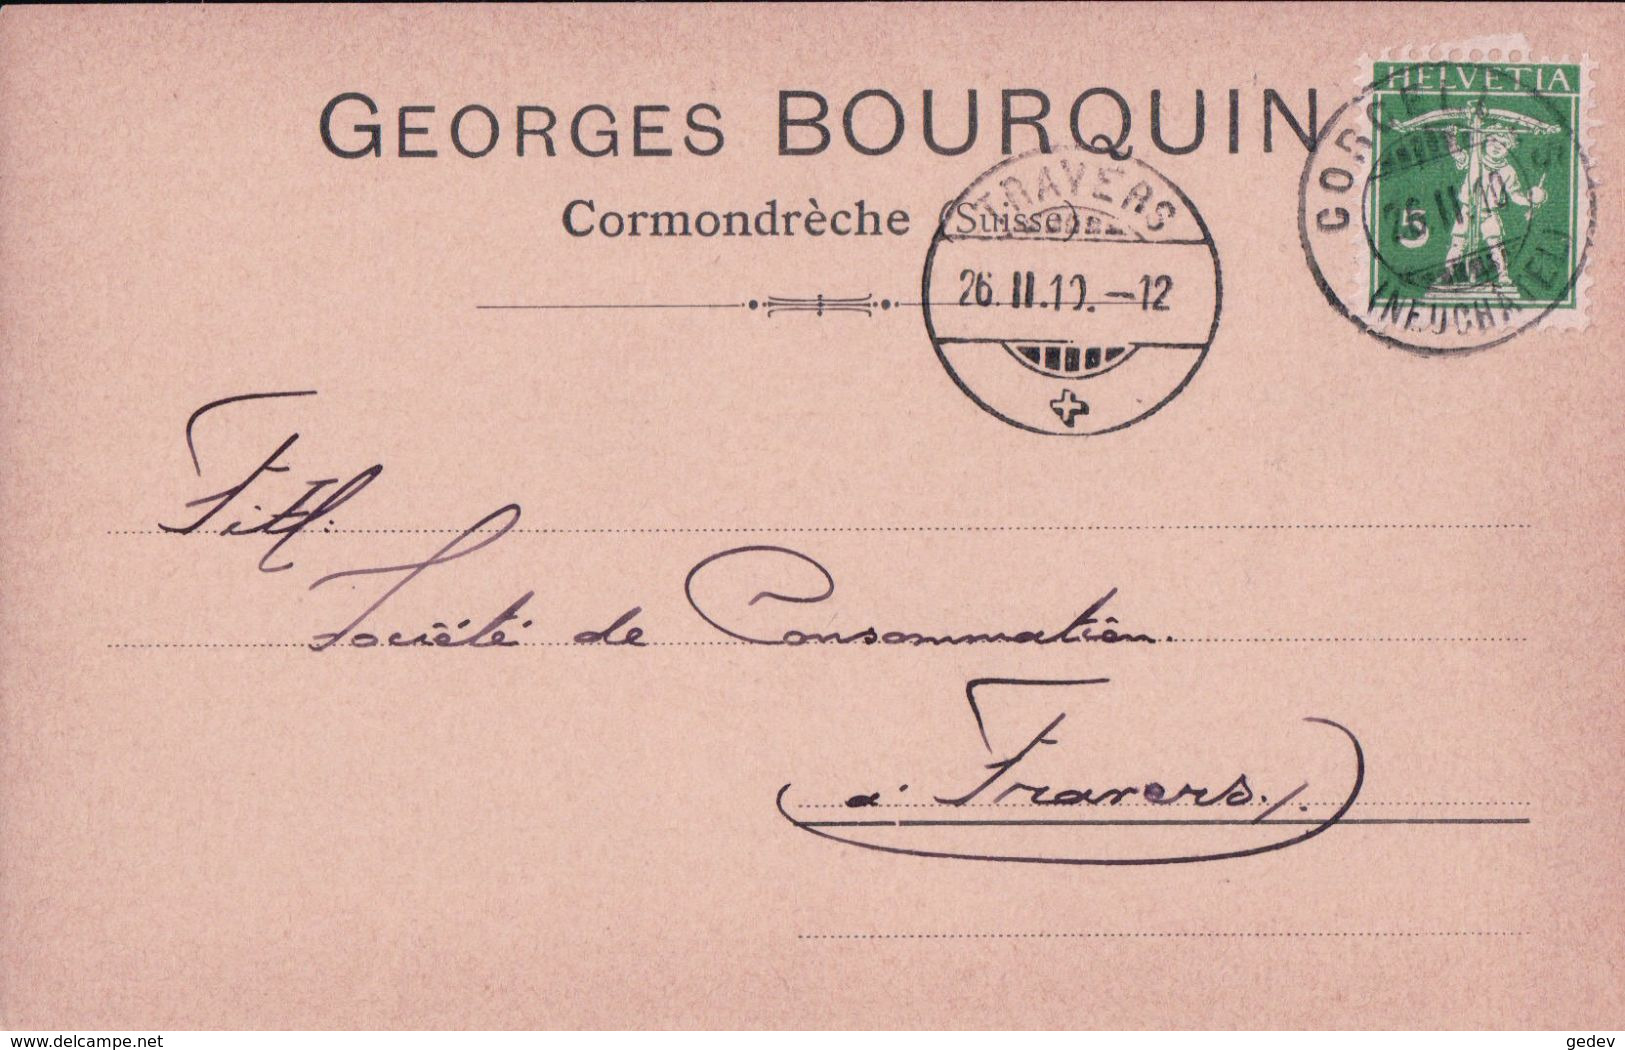 GEORGES BOURQUIN
Cormondrèche (Suisse)
HELVETIA
5
26.II.10
(NEUCHATEL)
TRAVERS
26.II.10.-12
Titl:
Société de Consommation.
à Travers.
www.delcampe.net
gedev